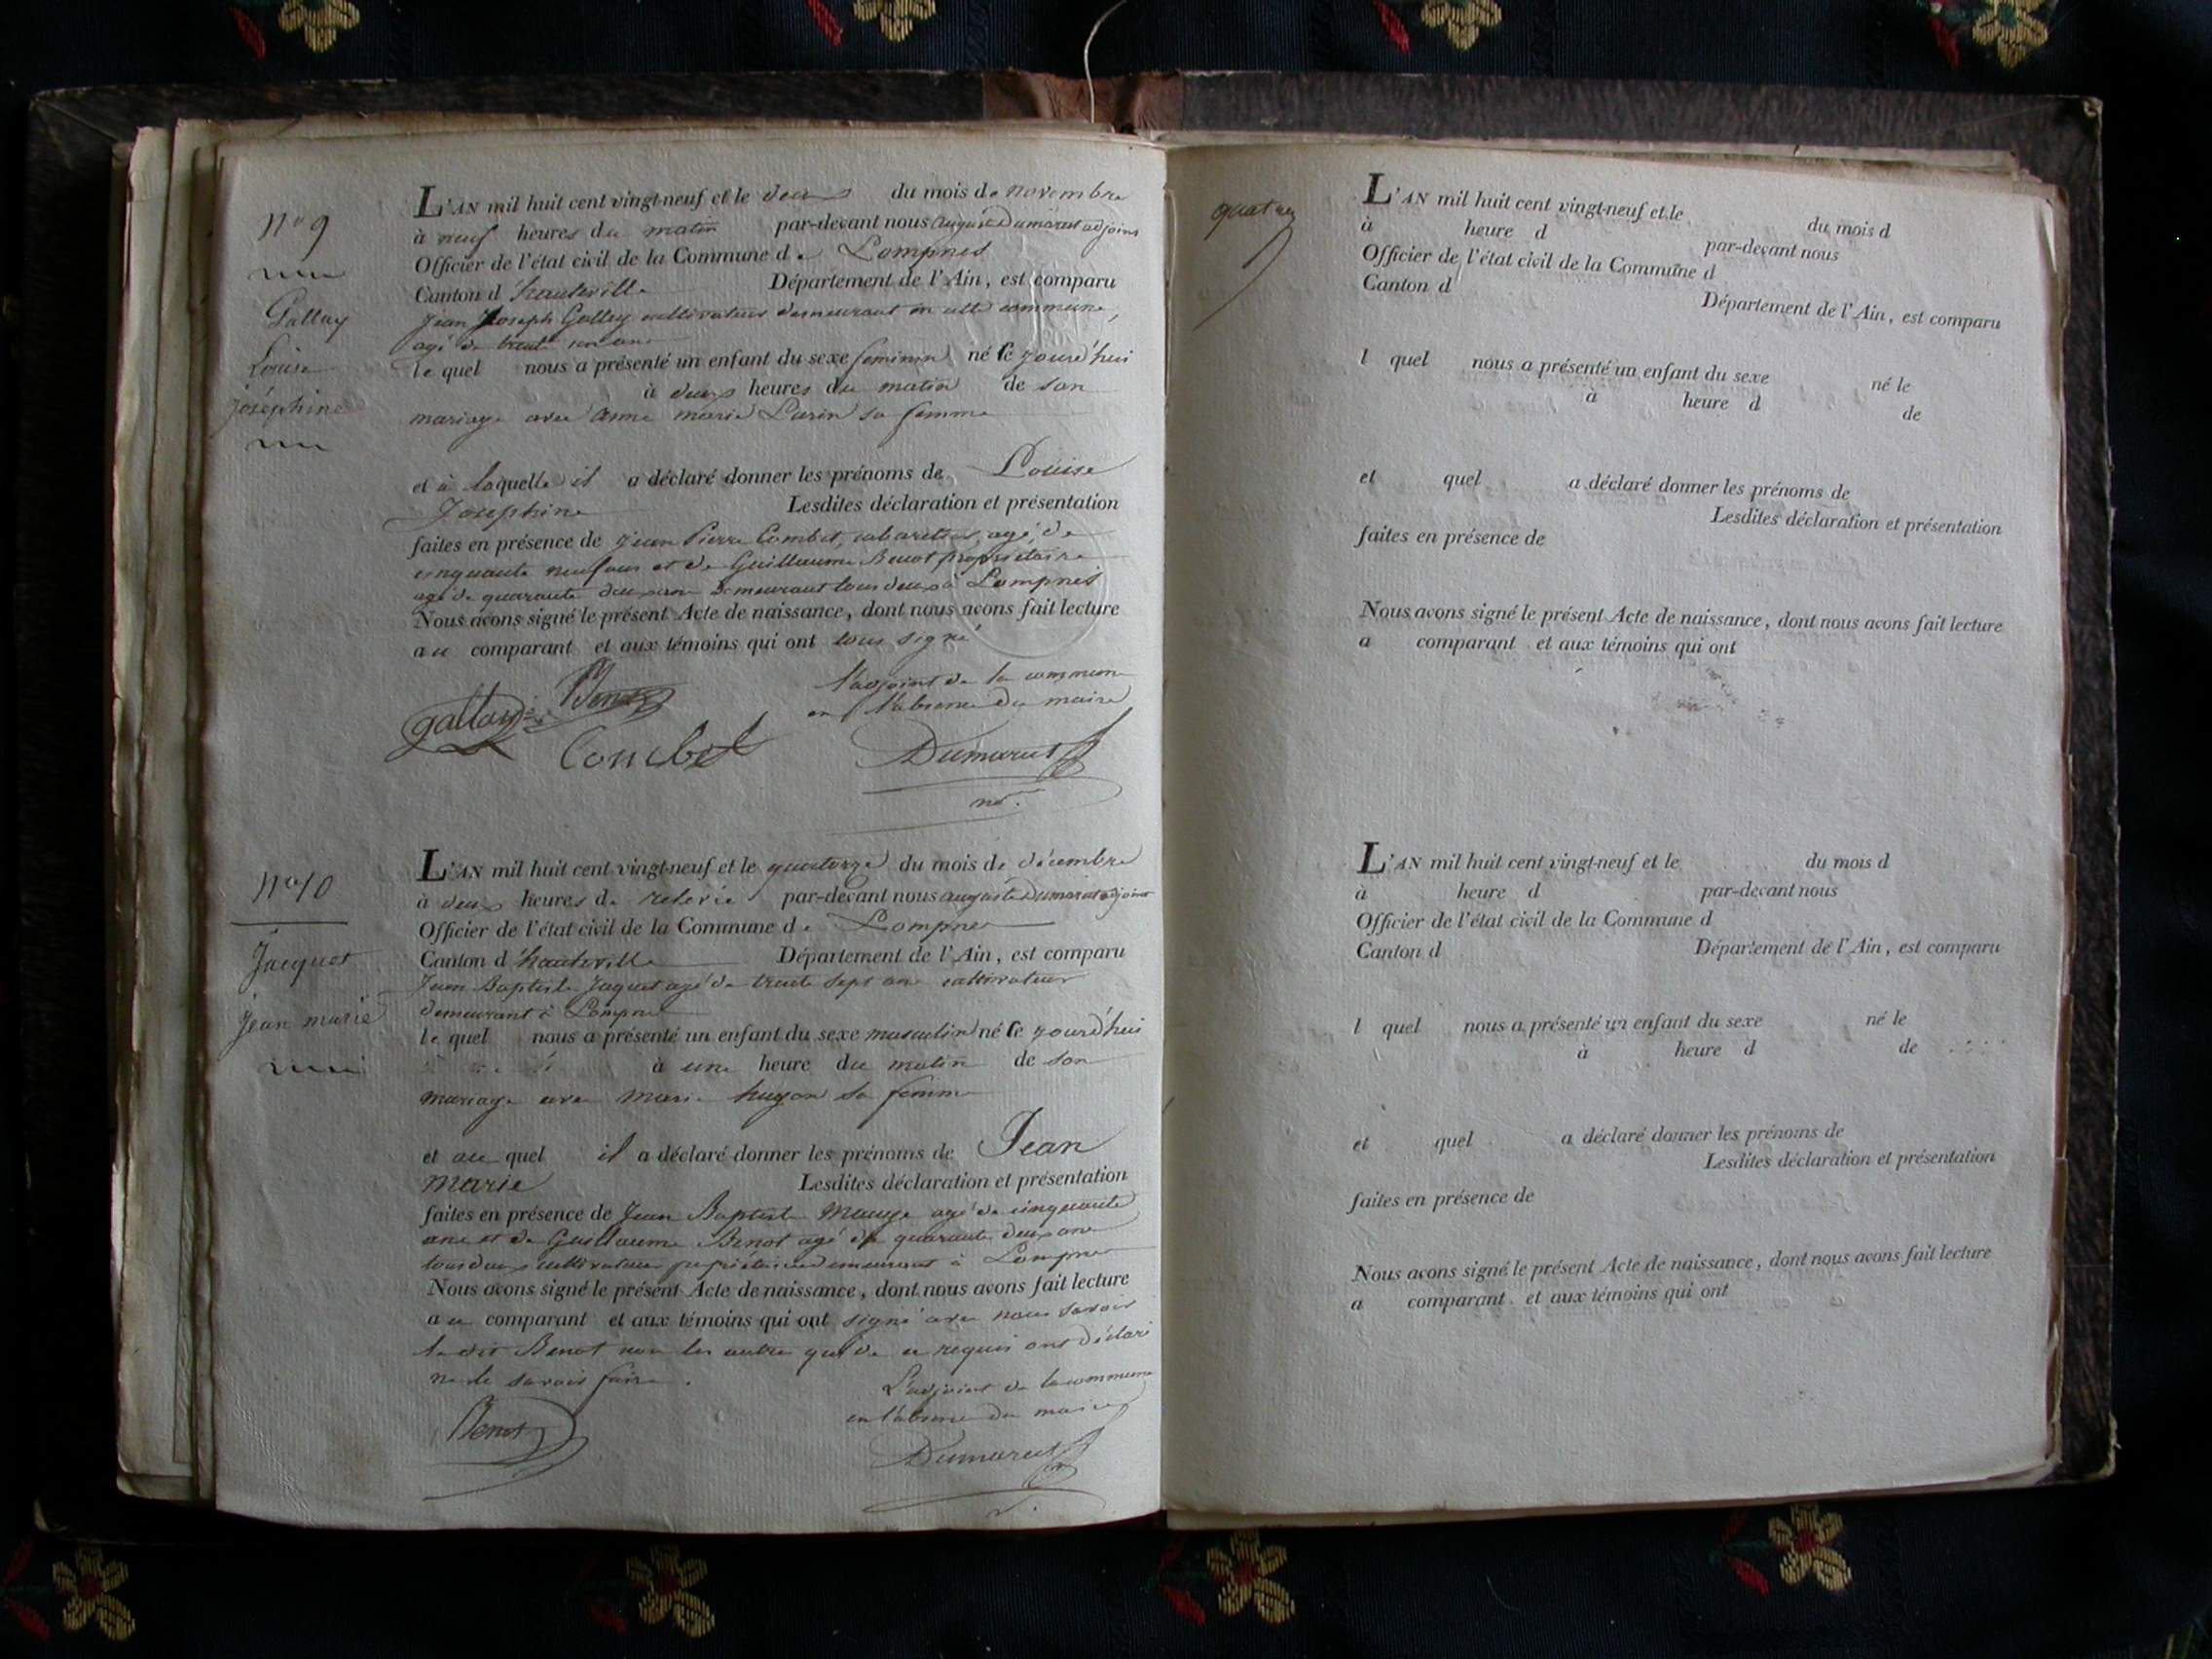 N° 9
Gallay
Louise
joséphine
L'AN mil huit cent vingt-neuf et le deux du mois de novembre
à neuf heures du matin par-devant nous auguste Dumarest adjoint
Officier de l'état civil de la Commune de Lompnes
Canton d'hauteville Département de l'Ain, est comparu
Jean Joseph Gallay cultivateur demeurant en cette commune,
agé de trente ans
le quel nous a présenté un enfant du sexe feminin né ce jourd'hui
à deux heures du matin de son
mariage avec anne marie Larin sa femme
et à laquelle il a déclaré donner les prénoms de Louise
Josephine Lesdites déclaration et présentation
faites en présence de jean Pierre Combet, cabaretier, agé de
cinquante neuf ans et de Guillaume Benot propriétaire
agé de quarante deux ans demeurant tous deux à Lompnes
Nous avons signé le présent Acte de naissance, dont nous avons fait lecture
au comparant et aux témoins qui ont tous signé
l'adjoint de la commune
en l'absence du maire
gallay Benot
Combet Dumarest
N° 10
Jacquet
jean marie
L'AN mil huit cent vingt-neuf et le quatorze du mois de décembre
à deux heures de relevée par-devant nous auguste Dumarest adjoint
Officier de l'état civil de la Commune de Lompnes
Canton d'hauteville Département de l'Ain, est comparu
Jean Baptiste Jaquet agé de trente sept ans cultivateur
demeurant à Lompnes
le quel nous a présenté un enfant du sexe masculin né ce jourd'hui
à une heure du matin de son
mariage avec marie hugon sa femme
et au quel il a déclaré donner les prénoms de Jean
marie Lesdites déclaration et présentation
faites en présence de Jean Baptiste agé de cinquante
ans et de Guillaume Benot agé de quarante deux ans
tous deux cultivateurs propriétaires demeurant à Lompnes
Nous avons signé le présent Acte de naissance, dont nous avons fait lecture
au comparant et aux témoins qui ont signé avec nous savoir
le dit Benot non les autres qui de ce requis ont déclaré
ne le savoir faire.
L'adjoint de la commune
en l'absence du maire
Benot Dumarest
quatre
L'AN mil huit cent vingt-neuf et le du mois d
à heure d par-devant nous
Officier de l'état civil de la Commune d
Canton d Département de l'Ain, est comparu
l quel nous a présenté un enfant du sexe né le
à heure d de
et quel a déclaré donner les prénoms de
Lesdites déclaration et présentation
faites en présence de
Nous avons signé le présent Acte de naissance, dont nous avons fait lecture
a comparant et aux témoins qui ont
L'AN mil huit cent vingt-neuf et le du mois d
à heure d par-devant nous
Officier de l'état civil de la Commune d
Canton d Département de l'Ain, est comparu
l quel nous a présenté un enfant du sexe né le
à heure d de
et quel a déclaré donner les prénoms de
Lesdites déclaration et présentation
faites en présence de
Nous avons signé le présent Acte de naissance, dont nous avons fait lecture
a comparant et aux témoins qui ont